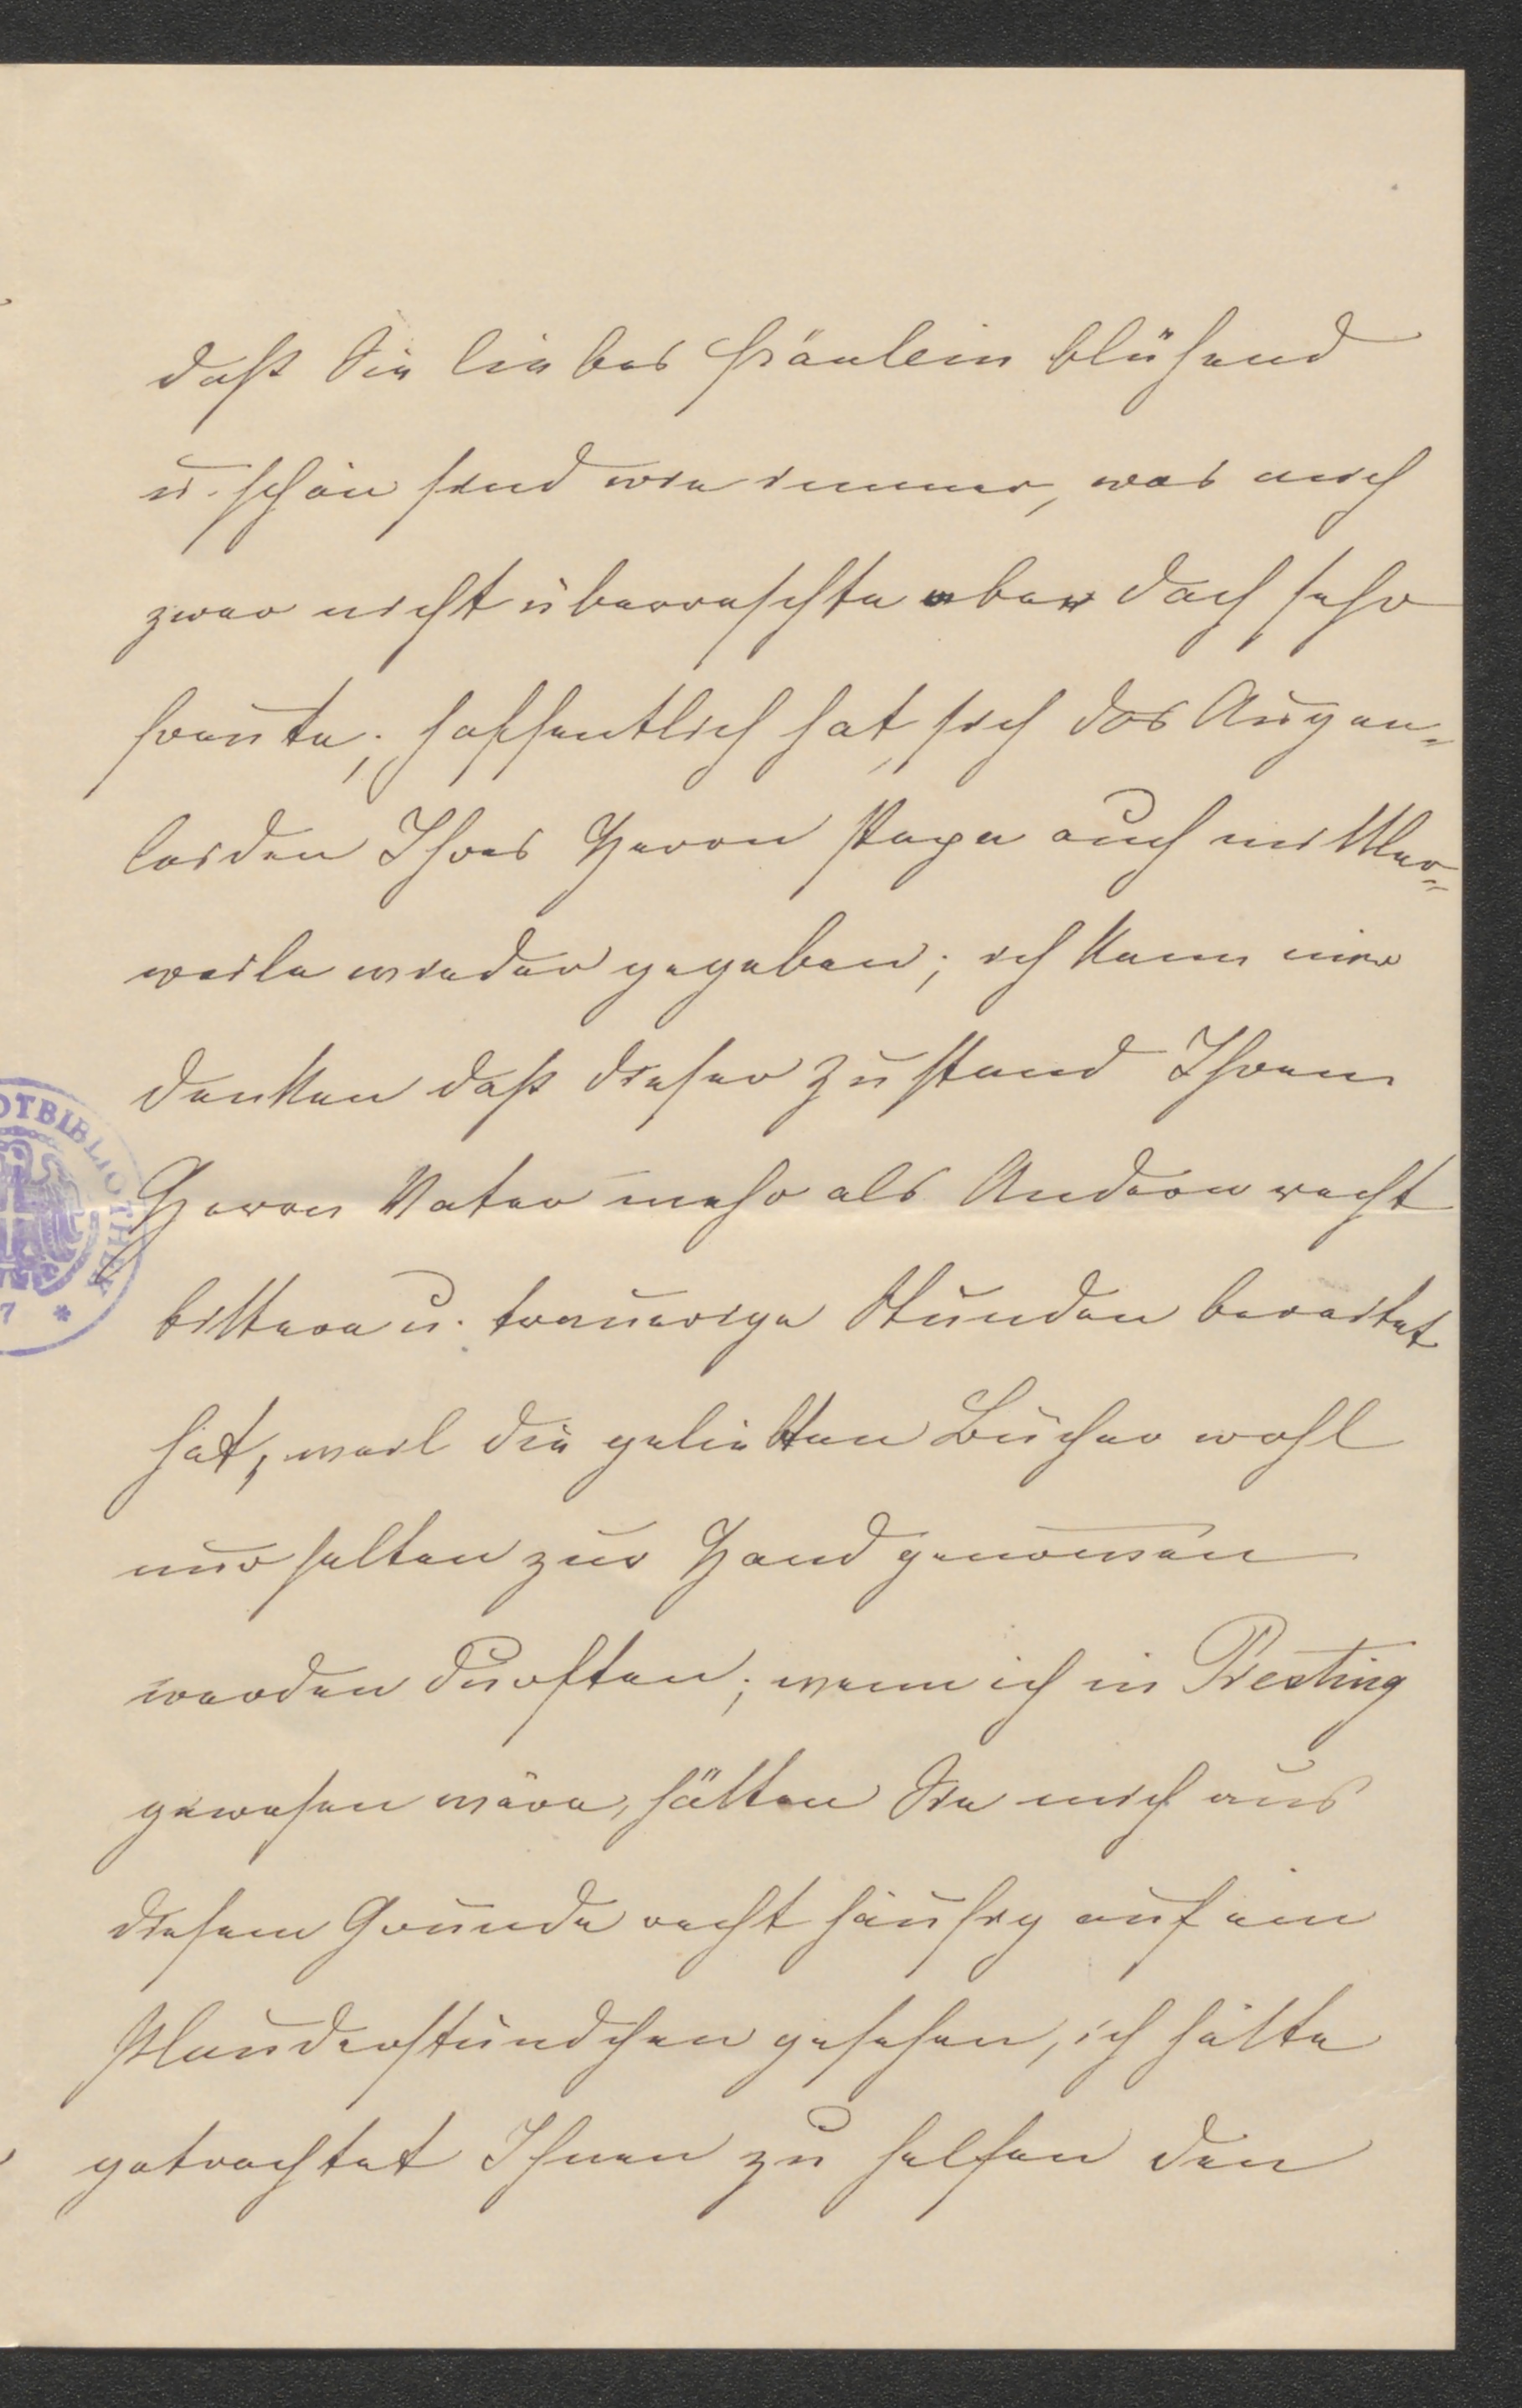 daß Sie liebes Fräulein blühend
u. schön sind wie immer, was mich
zwar nicht überraschte aber doch sehr
freute; hoffentlich hat sich das Augen=
leiden Ihres Herrn Papa auch mittler=
weile wieder gegeben; ich kann mir
denken daß dieser Zustand Ihrem
Herrn Vater mehr als Andern recht
bittere u. traurige Stunden bereitet
hat, weil die geliebten Bücher wohl
nur selten zur Hand genom̄en
werden durften; wenn ich in
gewesen wäre, hätten Sie mich aus
diesem Grunde recht häufig auf ein
Plauderstündchen gesehen, ich hätte
getrachtet Ihnen zu helfen den
DTBIBLIOTHEK
7 *